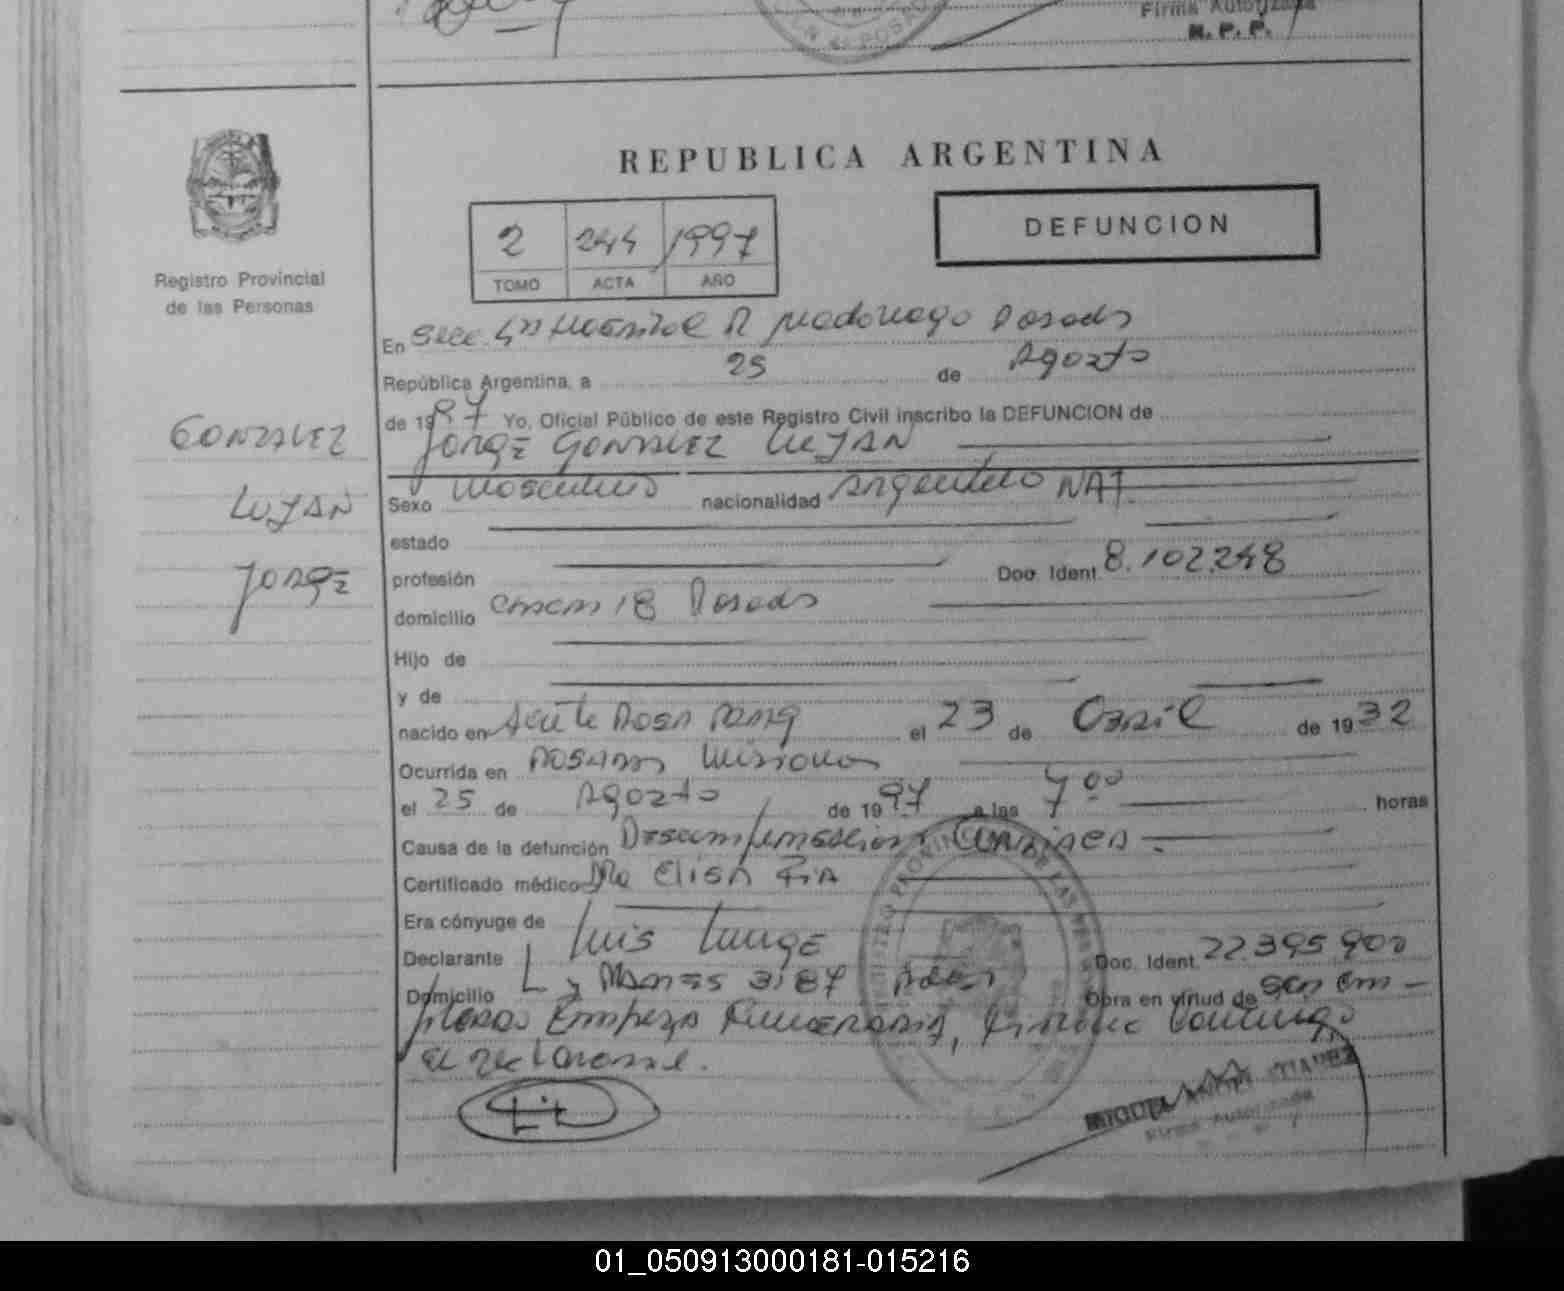 Firma Autorizada
N. P. P.
REPUBLICA ARGENTINA
DEFUNCION
2 244 1997
TOMO ACTA AÑO
Registro Provincial
de las Personas
En Secc. Hospital R Madariaga Posadas
República Argentina, a 25 de Agosto
de 1997 Yo, Oficial Público de este Registro Civil inscribo la DEFUNCION de
JORGE GONZALEZ LUJAN
GONZALEZ
LUJAN
JORGE
Sexo Masculino nacionalidad Argentino NAT.
estado
profesión Doc. Ident. 8.102.248
domicilio 18 Posadas
Hijo de
y de
nacido en el 23 de de 1932
Ocurrida en POSADAS Misiones
el 25 de Agosto de 1997 a las 7 00 horas
Causa de la defunción Descompensacion Cardiaca
Certificado médico Dra Elisa
Era cónyuge de
Declarante Luis Doc. Ident. 22.395.900
Domicilio L y 3187 Obra en virtud de ser em-
Empresa Funeraria, conmigo
el declarante.
MIGUEL
Firma Autorizada
01_050913000181-015216